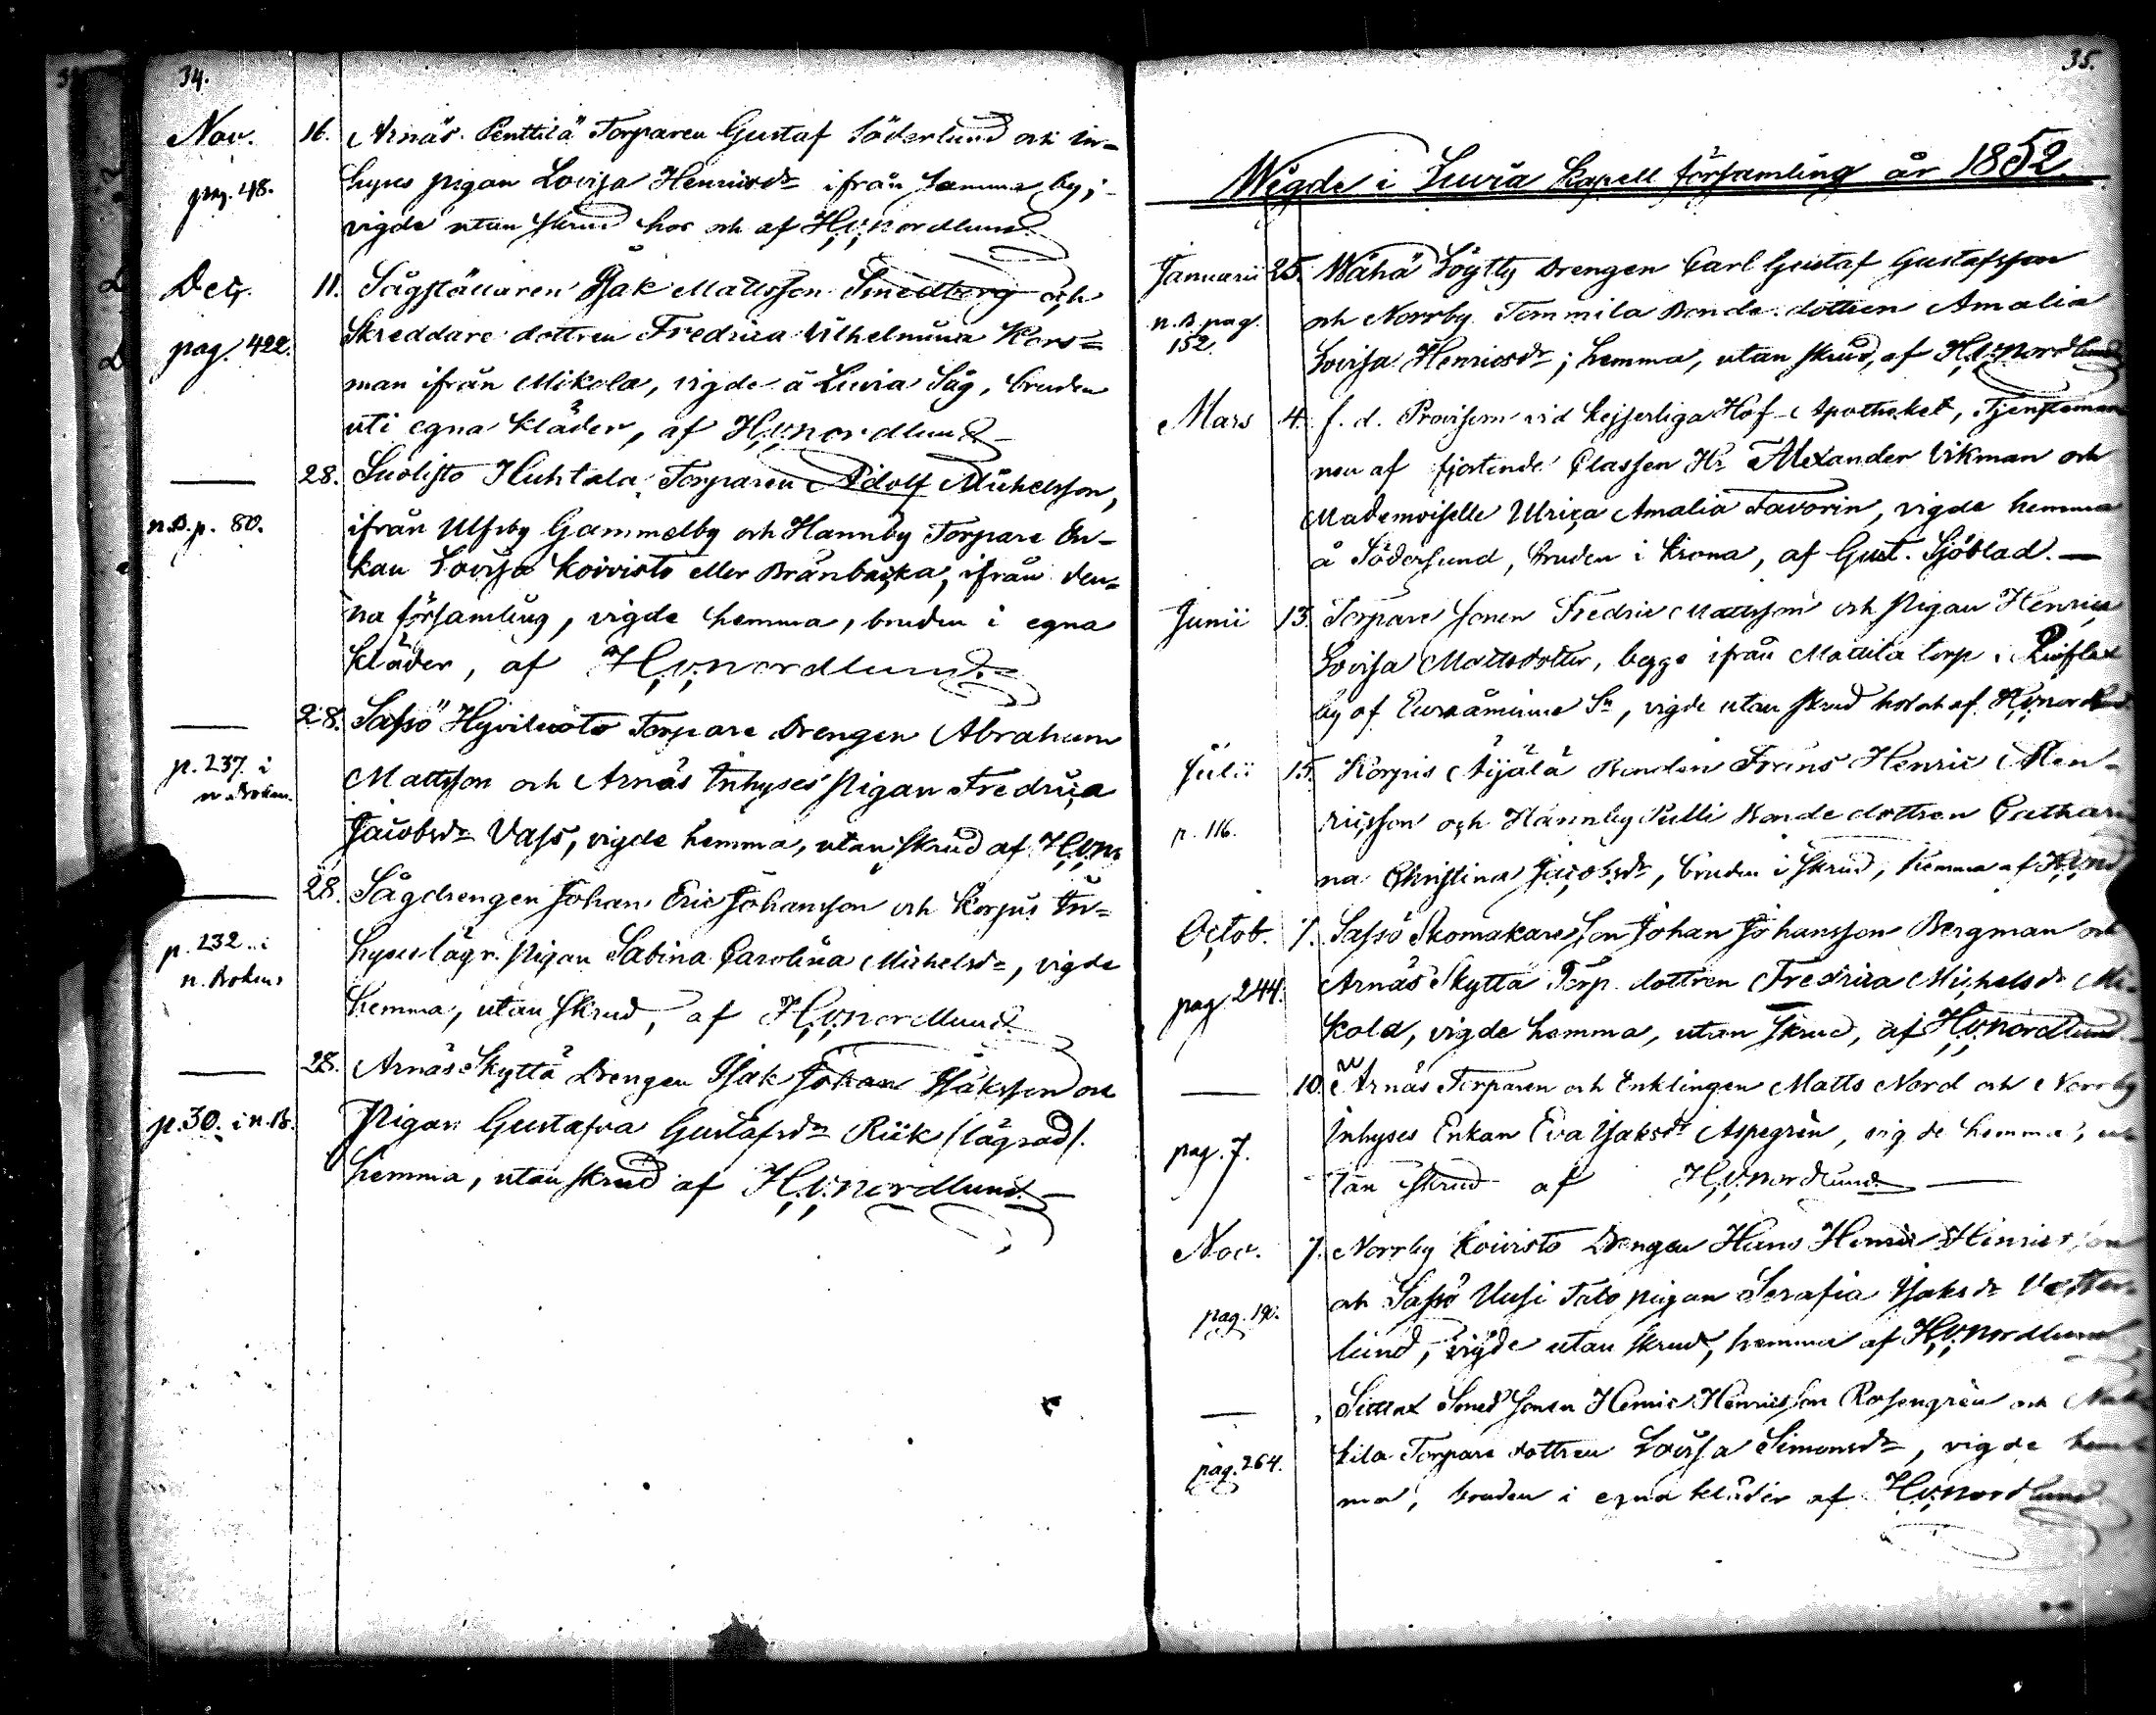 34.
Nov. 16. Arnäs Penttilä Torparen Gustaf Söderlund och In-
pag. 48. hyses pigan Lovisa Henricsdr ifrån samma by;
vigde utan skrud hos och af H.v:Nordlund
Dec. 11. Sågställaren Isak Mattsson Smedberg och
pag. 422. Skreddare dottren Fredrica Vilhelmina Kors=
man ifrån Mikola, vigde å Luvia Såg, bruden
uti egna kläder, af H.v:Nordlund
— 28. Luolisto Huhtala Torparen Adolf Michelsson,
n.B.p. 80. ifrån Ulfsby Gammelby och Hannby Torpare En-
kan Lovisa Koivisto eller Bränbacka, ifrån den=
na församling, vigde hemma, bruden i egna
kläder, af H.v:Nordlund.
— 28. Sassö Hyviluoto Torpare Drengen Abraham
p. 237. i n. Boken. Mattsson och Arnäs Inhyses pigan Fredrica
Jacobsdr Vass, vigde hemma, utan skrud af H.v:N
— 28. Sågdrengen Johan Eric Johansson och Korpis In=
p. 232. i hyses lägr. pigan Sabina Carolina Michelsdr, vigde
n. Boken hemma, utan skrud, af H.v:Nordlund
— 28. Arnäs Skyttä Drengen Isak Johan Isaksson och
p. 30. i n.B. Pigan Gustafva Gustafsdr Riik /lägrad/.
hemma, utan skrud af H.v:Nordlund
35.
Wigde i Luvia Kapell församling år 1852.
Januarii 25. Wähä Löytty Drengen Carl Gustaf Gustafsson
n.B. pag. och Norrby Tommila Bonde dottren Amalia
152. Lovisa Henricsdr; hemma, utan skrud, af H.v:Nordlund
Mars 4. f. d. Provisorn vid Kejserliga Hof-Apotheket, Tjensteman
nen af fjortende Classen Hr Alexander Vikman och
Mademoiselle Ulrica Amalia Favorin, vigde hemma
å Södersund, bruden i krona, af Gust. Sjöblad. —
Junii 13. Torpare sonen Fredric Mattsson och pigan Henrica
Lovisa Mattsdotter, begge ifrån Mattila torp i
by af Euraåminne Sn, vigde utan skrud hos och af H.v:Nordlund
Julii 15. Korpis Äijälä Bonden Frans Henric Hen-
p. 116. ricsson och Hannby Pulli Bonde dottren Cathari
na Christina Jacobsdr, bruden i skrud, hemma af H.v:N
Octob. 1. Sassö Skomakare son Johan Johansson Bergman och
pag 244. Arnäs Skyttä Torp. dottren Fredrica Michelsdr Mi-
kola, vigde hemma, utan skrud, af H.v:Nordlund
— 10. Arnäs Torparen och Enklingen Matts Nord och Norrby
pag. 7. Inhyses Enkan Eva Isaksdr Aspegrén, vigde hemma, u
tan skrud af H.v:Nordlund —
Nov. 7. Norrby Koivisto Drengen Hans Henric Henricsson
pag. 190. och Sassö Uusi Talo pigan Serafia Isaksdr Vester-
lund, vigde utan skrud, hemma af H.v:Nordlund
— Smed sonen Henric Henricsson Rosengrén och
pag. 264. kila Torpare dottren Lovisa Simonsdr, vigde hem
ma, bruden i egna kläder af H.v:Nordlund